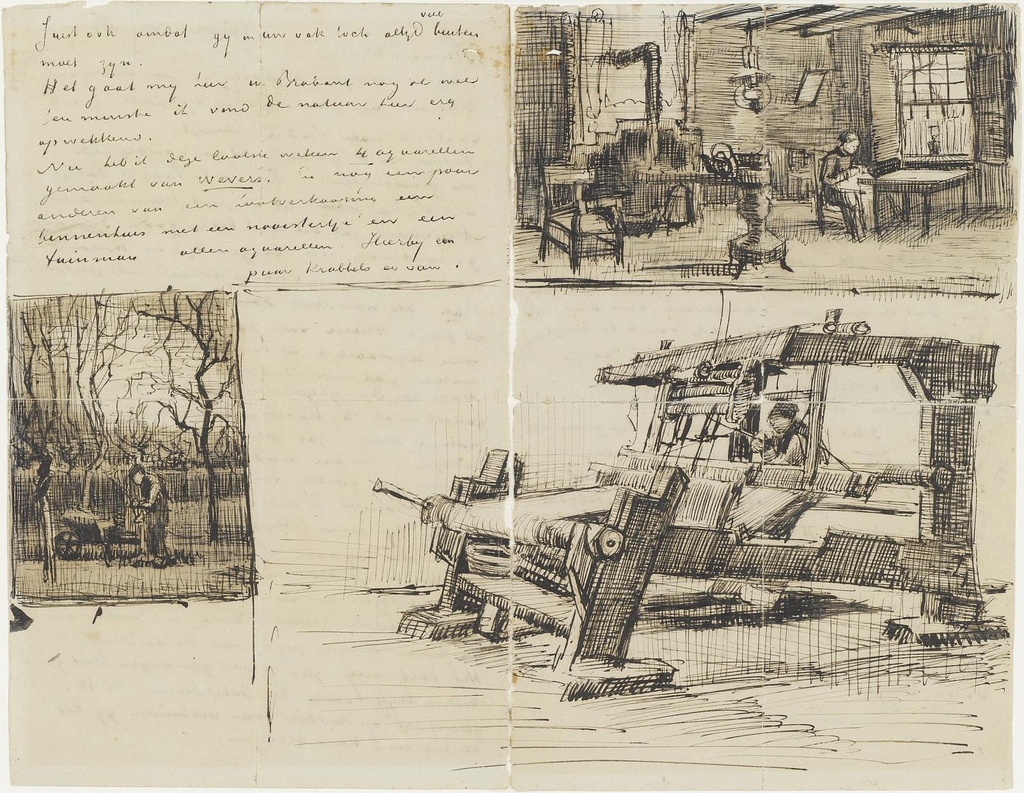 Juist ook omdat gy in uw vak toch altyd veel buiten
moet zyn.
Het gaat my hier in Brabant nog al wel
ten minste ik vind de natuur hier erg
opwekkend.
Nu heb ik deze laatste weken 4 aquarellen
gemaakt van wevers. En nog een paar
anderen van een houtverkooping een
binnenhuis met een naaistertje en een
tuinman allen aquarellen. Hierby een
paar krabbels er van.